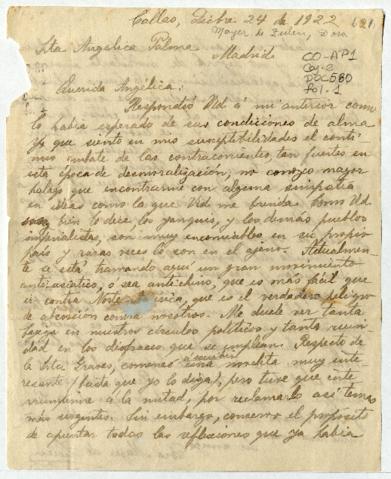 Callao, Dicbre 24 de 1922
621
Mayer de Zulen, Dora
Sta Angélica Palma
Madrid
CO-AP1
Caj-2
DOC 560
fol. 1
Querida Angélica:
Respondió Ud á mi anterior como
lo había esperado de sus condiciones de alma
Ya que siento en mis susceptibilidades el conti-
nuo embate de las contracorrientes, tan fuertes en
esta época de desmoralización, no conozco mayor
halago que encontrarme con alguna simpatía
en ideas como la que Ud me brinda. Como Ud.
bien lo dice los yanquis, y los demás pueblos
imperialistas, son muy encomiables en su propio
país y raras veces lo son en el ajeno. Actualmen-
te se está tramando aquí un gran movimiento
antiasiático, ó sea antichino, que es más fácil que
ir contra Norte América, que es el verdadero peligro
de absorción contra nosotros. Me duele ver tanta
en nuestros círculos políticos y tanta ruin-
dad en los disfraces que se emplean. Respecto de
la Sta. Graves, comencé á escribir una novelita muy inte-
resante, (hasta que yo lo diga), pero tuve que inte-
rrumpirme á la mitad, por reclamarlo así temas
más urgentes. Sin embargo, conservo el propósito
de apuntar todas las reflexiones que ya había